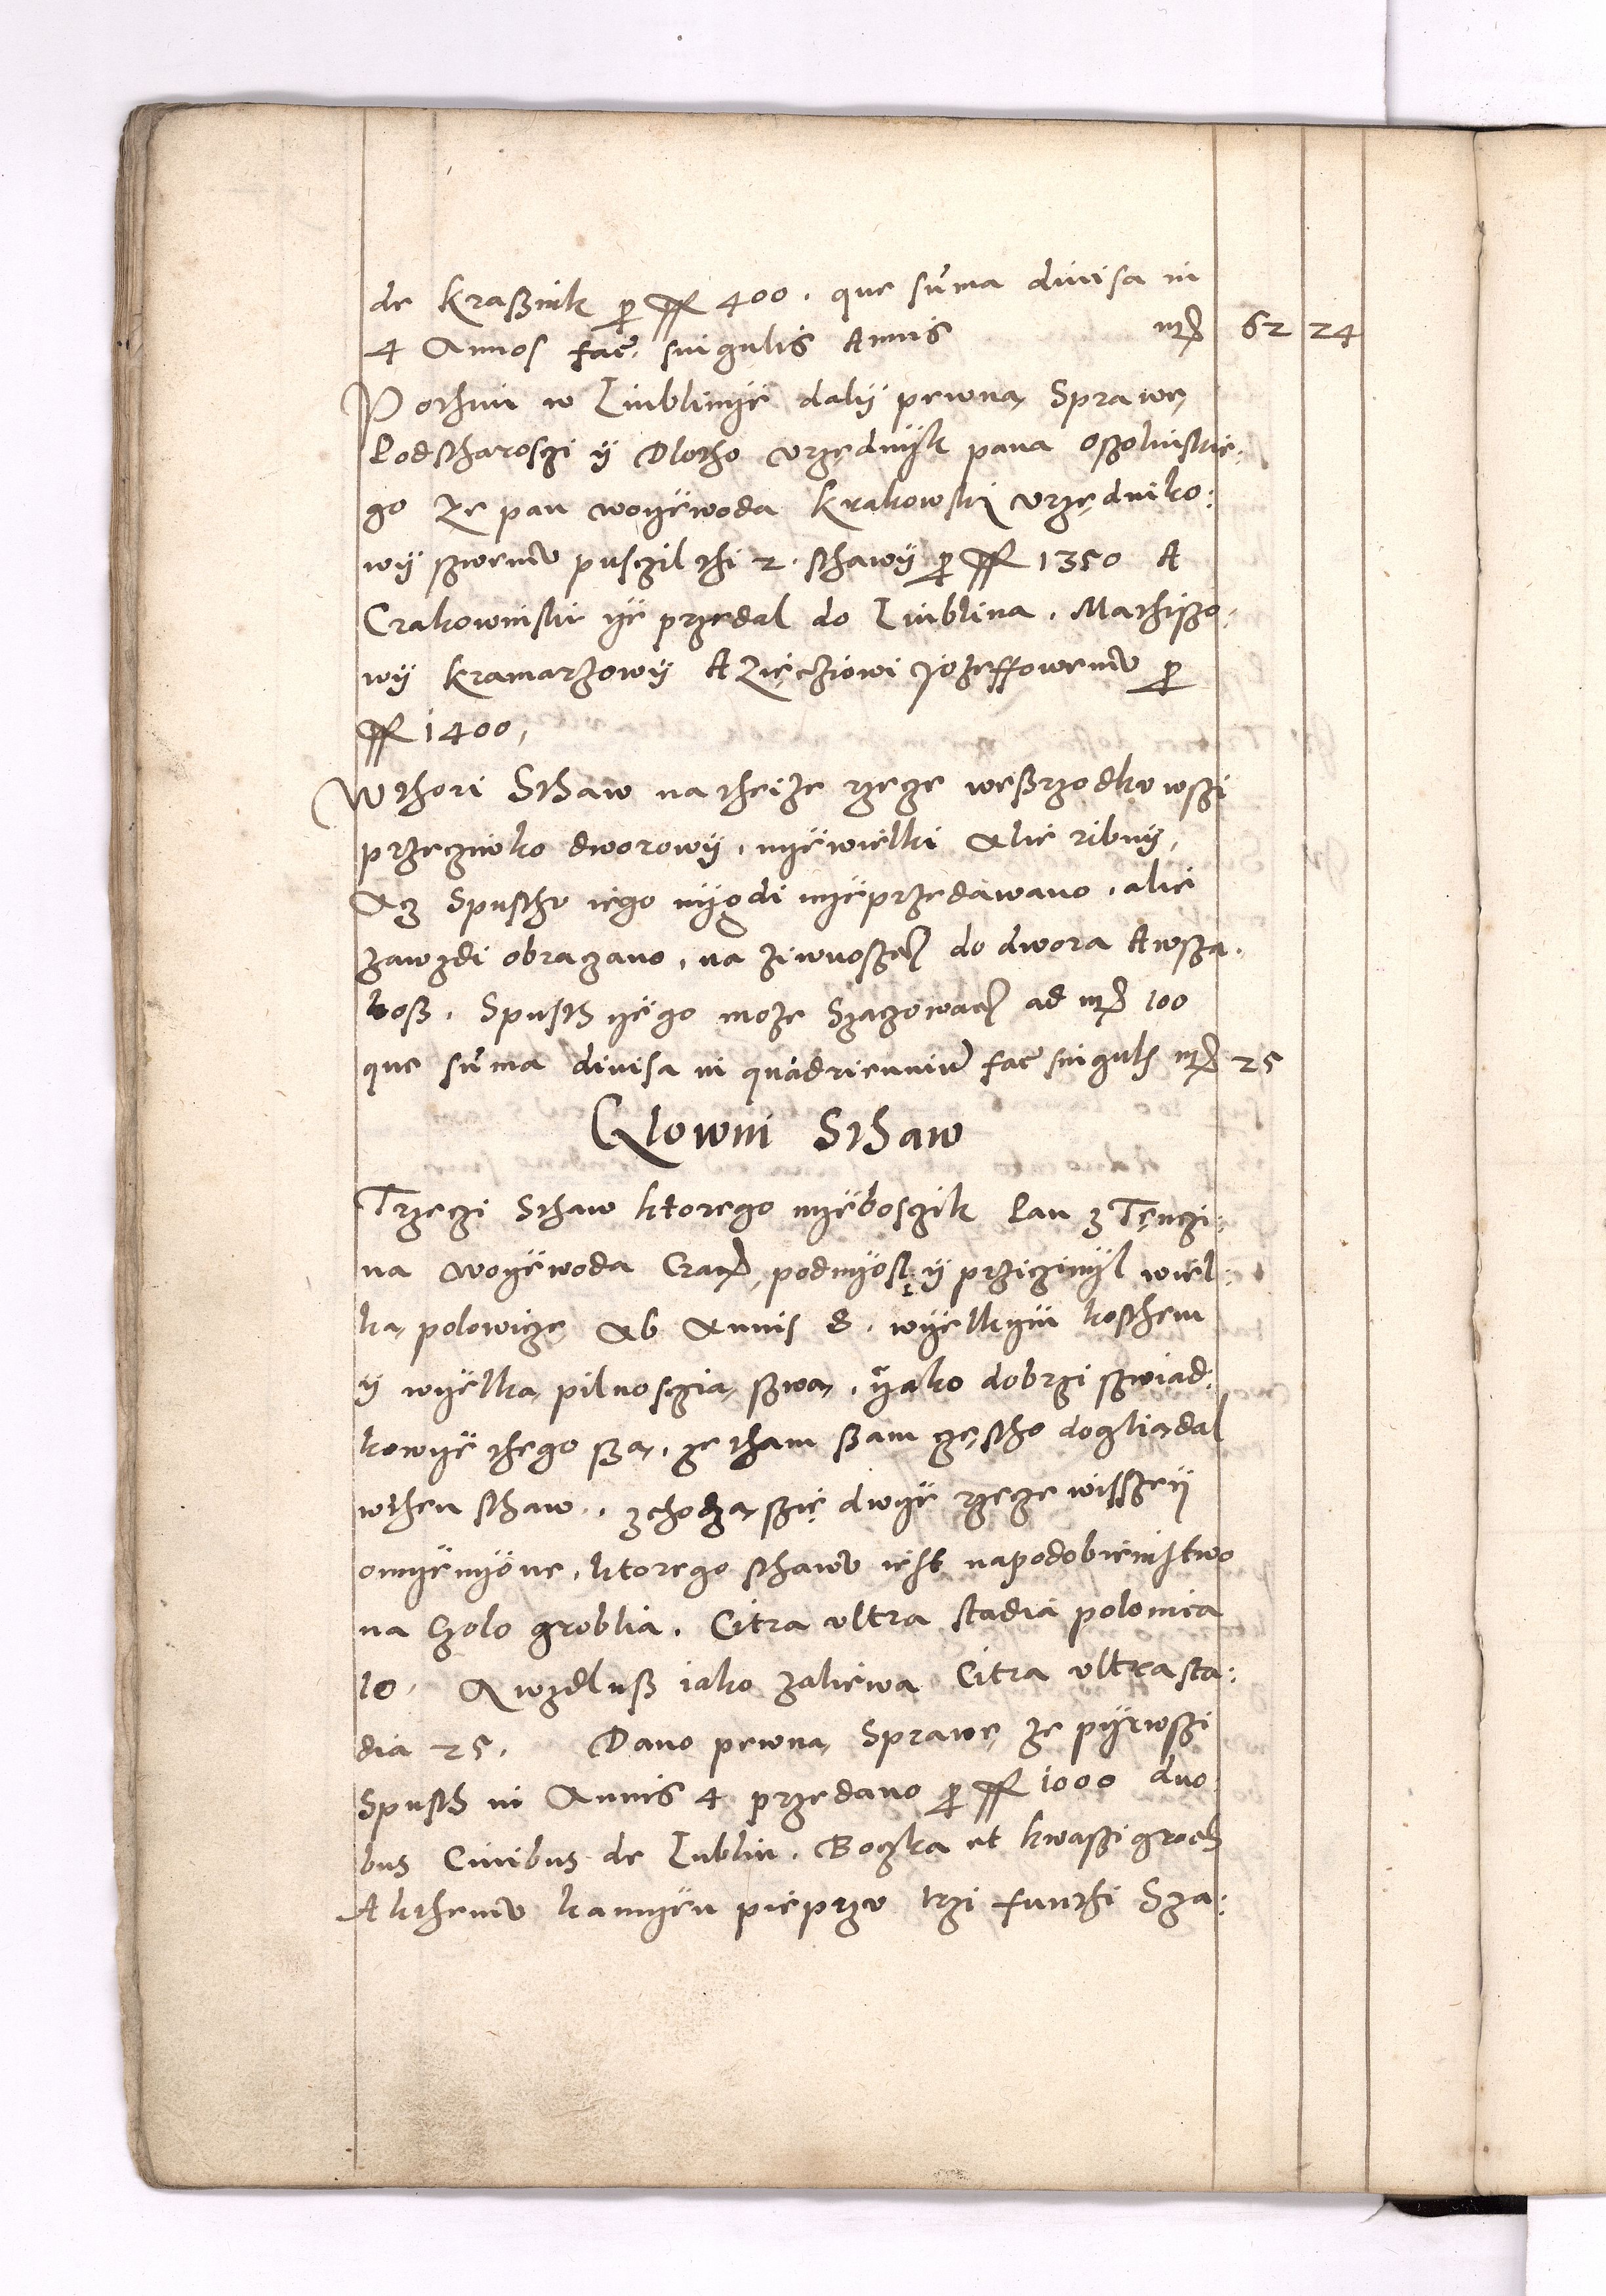 de Kraßnik p ff 400. que suma diuisa in
4 Annos fac. singulis Annis mr 62 24
Pothim w Liublinye daly pewną Sprawę
Podstharosczi y Dlotho vrzędnyk pana Oszolinskie,
go że pan woyewoda Krakowski vrzędniko:
wy szwemu pusczil thi 2. sthawy p ff 1350 A
Crakowinski ye przedal do Liublina. Mathiszo,
wy kramarzowy A Zięcziowi Jozeffowemu p
ff 1400,
Wthori Sthaw na theize rzece weßrzodku wszi
przeciwko dworowy. nyewielki Alie ribny,
Acz Spusthu iego nygdi nyeprzedawano. alie
zawzdi obraczano, na ziwnoscz do dwora Awsza.
koß. Spusth yego może Szaczowacz ad mr 100
que suma diuisa in quadrienniu fac singulis mr 25
Glowni Sthaw
Trzeczi Sthaw ktorego nyeboszik Pan z Tęnczi:
na woyewoda Crac, podnyosl y przicinyl wiel:
ką polowiczę Ab Annis 8. wyelkym kosthem
y wyelką pilnosczią szwą, yako dobrzi szwiad,
kowye thego są, ze tham ßam cęstho dogliądal
wthen sthaw. zchodzą szię dwye rzece wisszey
omyenyone, ktorego sthawu iest napodobienstwo
na Czolo groblia. Citra vltra stadia polonica
10. A wzdluß iako zaliewa Citra vltra sta:
dia 25. Dano pewną Sprawę że pyrwszi
Spusth in Annis 4 przedano p ff 1000 duo
bus Ciuibus de Lublin. Boczka et kwaszigroch
Akthemu kamyen pieprzu trzi funthi Sza: